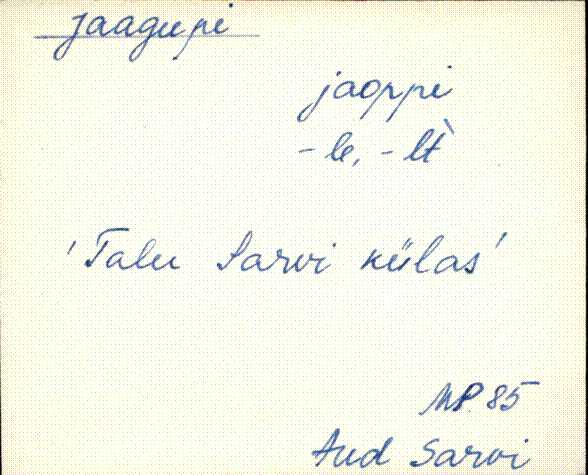 jaagupi
jaoppi
- le, - lt̀
'Talu Sarvi külas'
MP. 85
Aud Sarvi